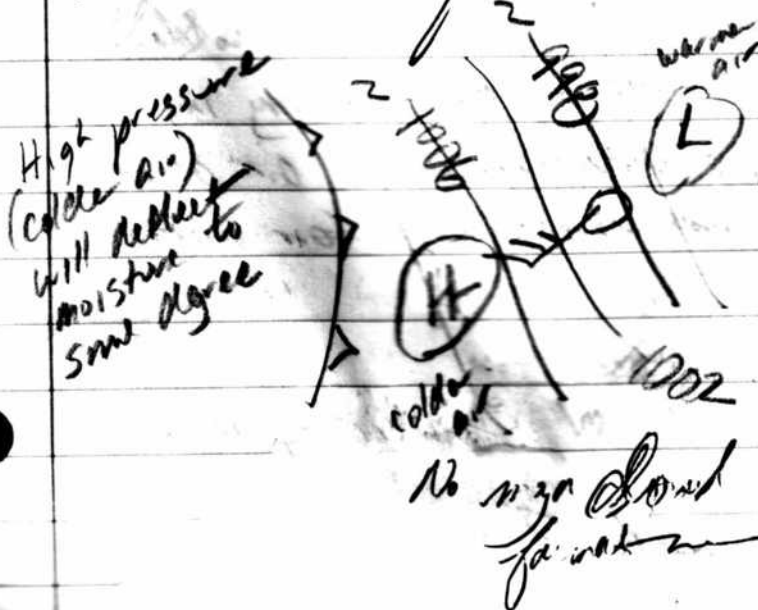 High pressure
(colder air)
will deflect
moisture to
some degree
2
1006
2
998
warmer
air
L
H
colder
air
1002
No sign cloud
formation